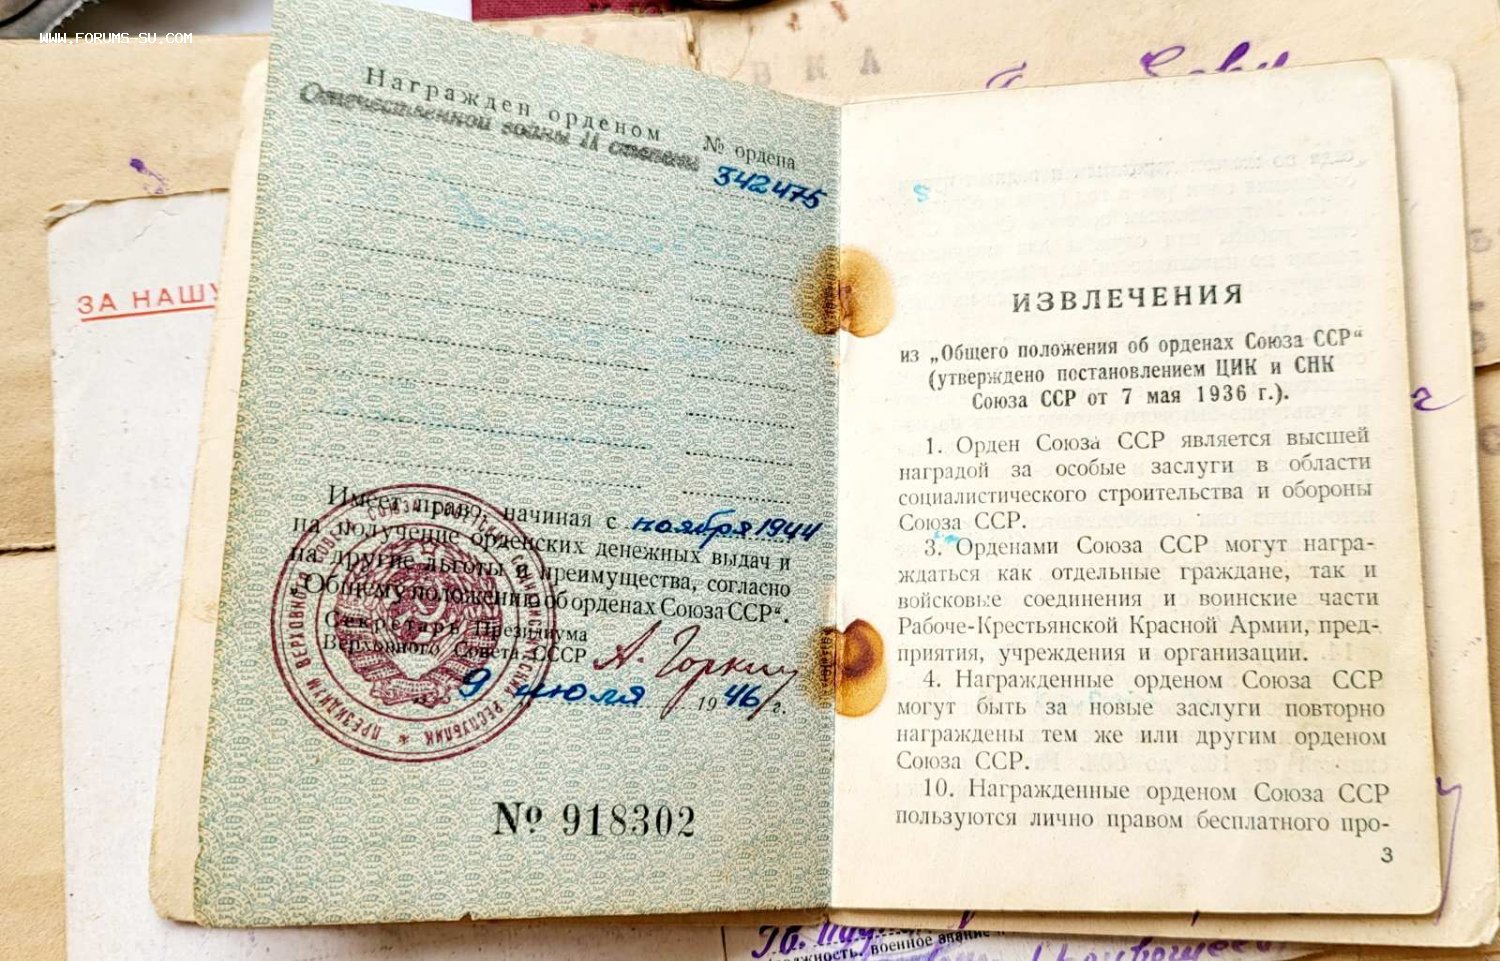 WWW.FORUMS-SU.COM
ВКА
ЗА НАШУ
Награжден орденом
№ ордена
Отечественной войны II степени
342475
Имеет право, начиная с ноября 1944
на получение орденских денежных выдач и
на другие льготы и преимущества, согласно
„Общему положению об орденах Союза ССР“.
Секретарь Президиума
Верховного Совета СССР
А. Горкин
9 июля 1946 г.
№ 918302
ИЗВЛЕЧЕНИЯ
из „Общего положения об орденах Союза ССР“
(утверждено постановлением ЦИК и СНК
Союза ССР от 7 мая 1936 г.).
1. Орден Союза ССР является высшей
наградой за особые заслуги в области
социалистического строительства и обороны
Союза ССР.
3. Орденами Союза ССР могут награ-
ждаться как отдельные граждане, так и
войсковые соединения и воинские части
Рабоче-Крестьянской Красной Армии, пред-
приятия, учреждения и организации.
4. Награжденные орденом Союза ССР
могут быть за новые заслуги повторно
награждены тем же или другим орденом
Союза ССР.
10. Награжденные орденом Союза ССР
пользуются лично правом бесплатного про-
3
военное звание